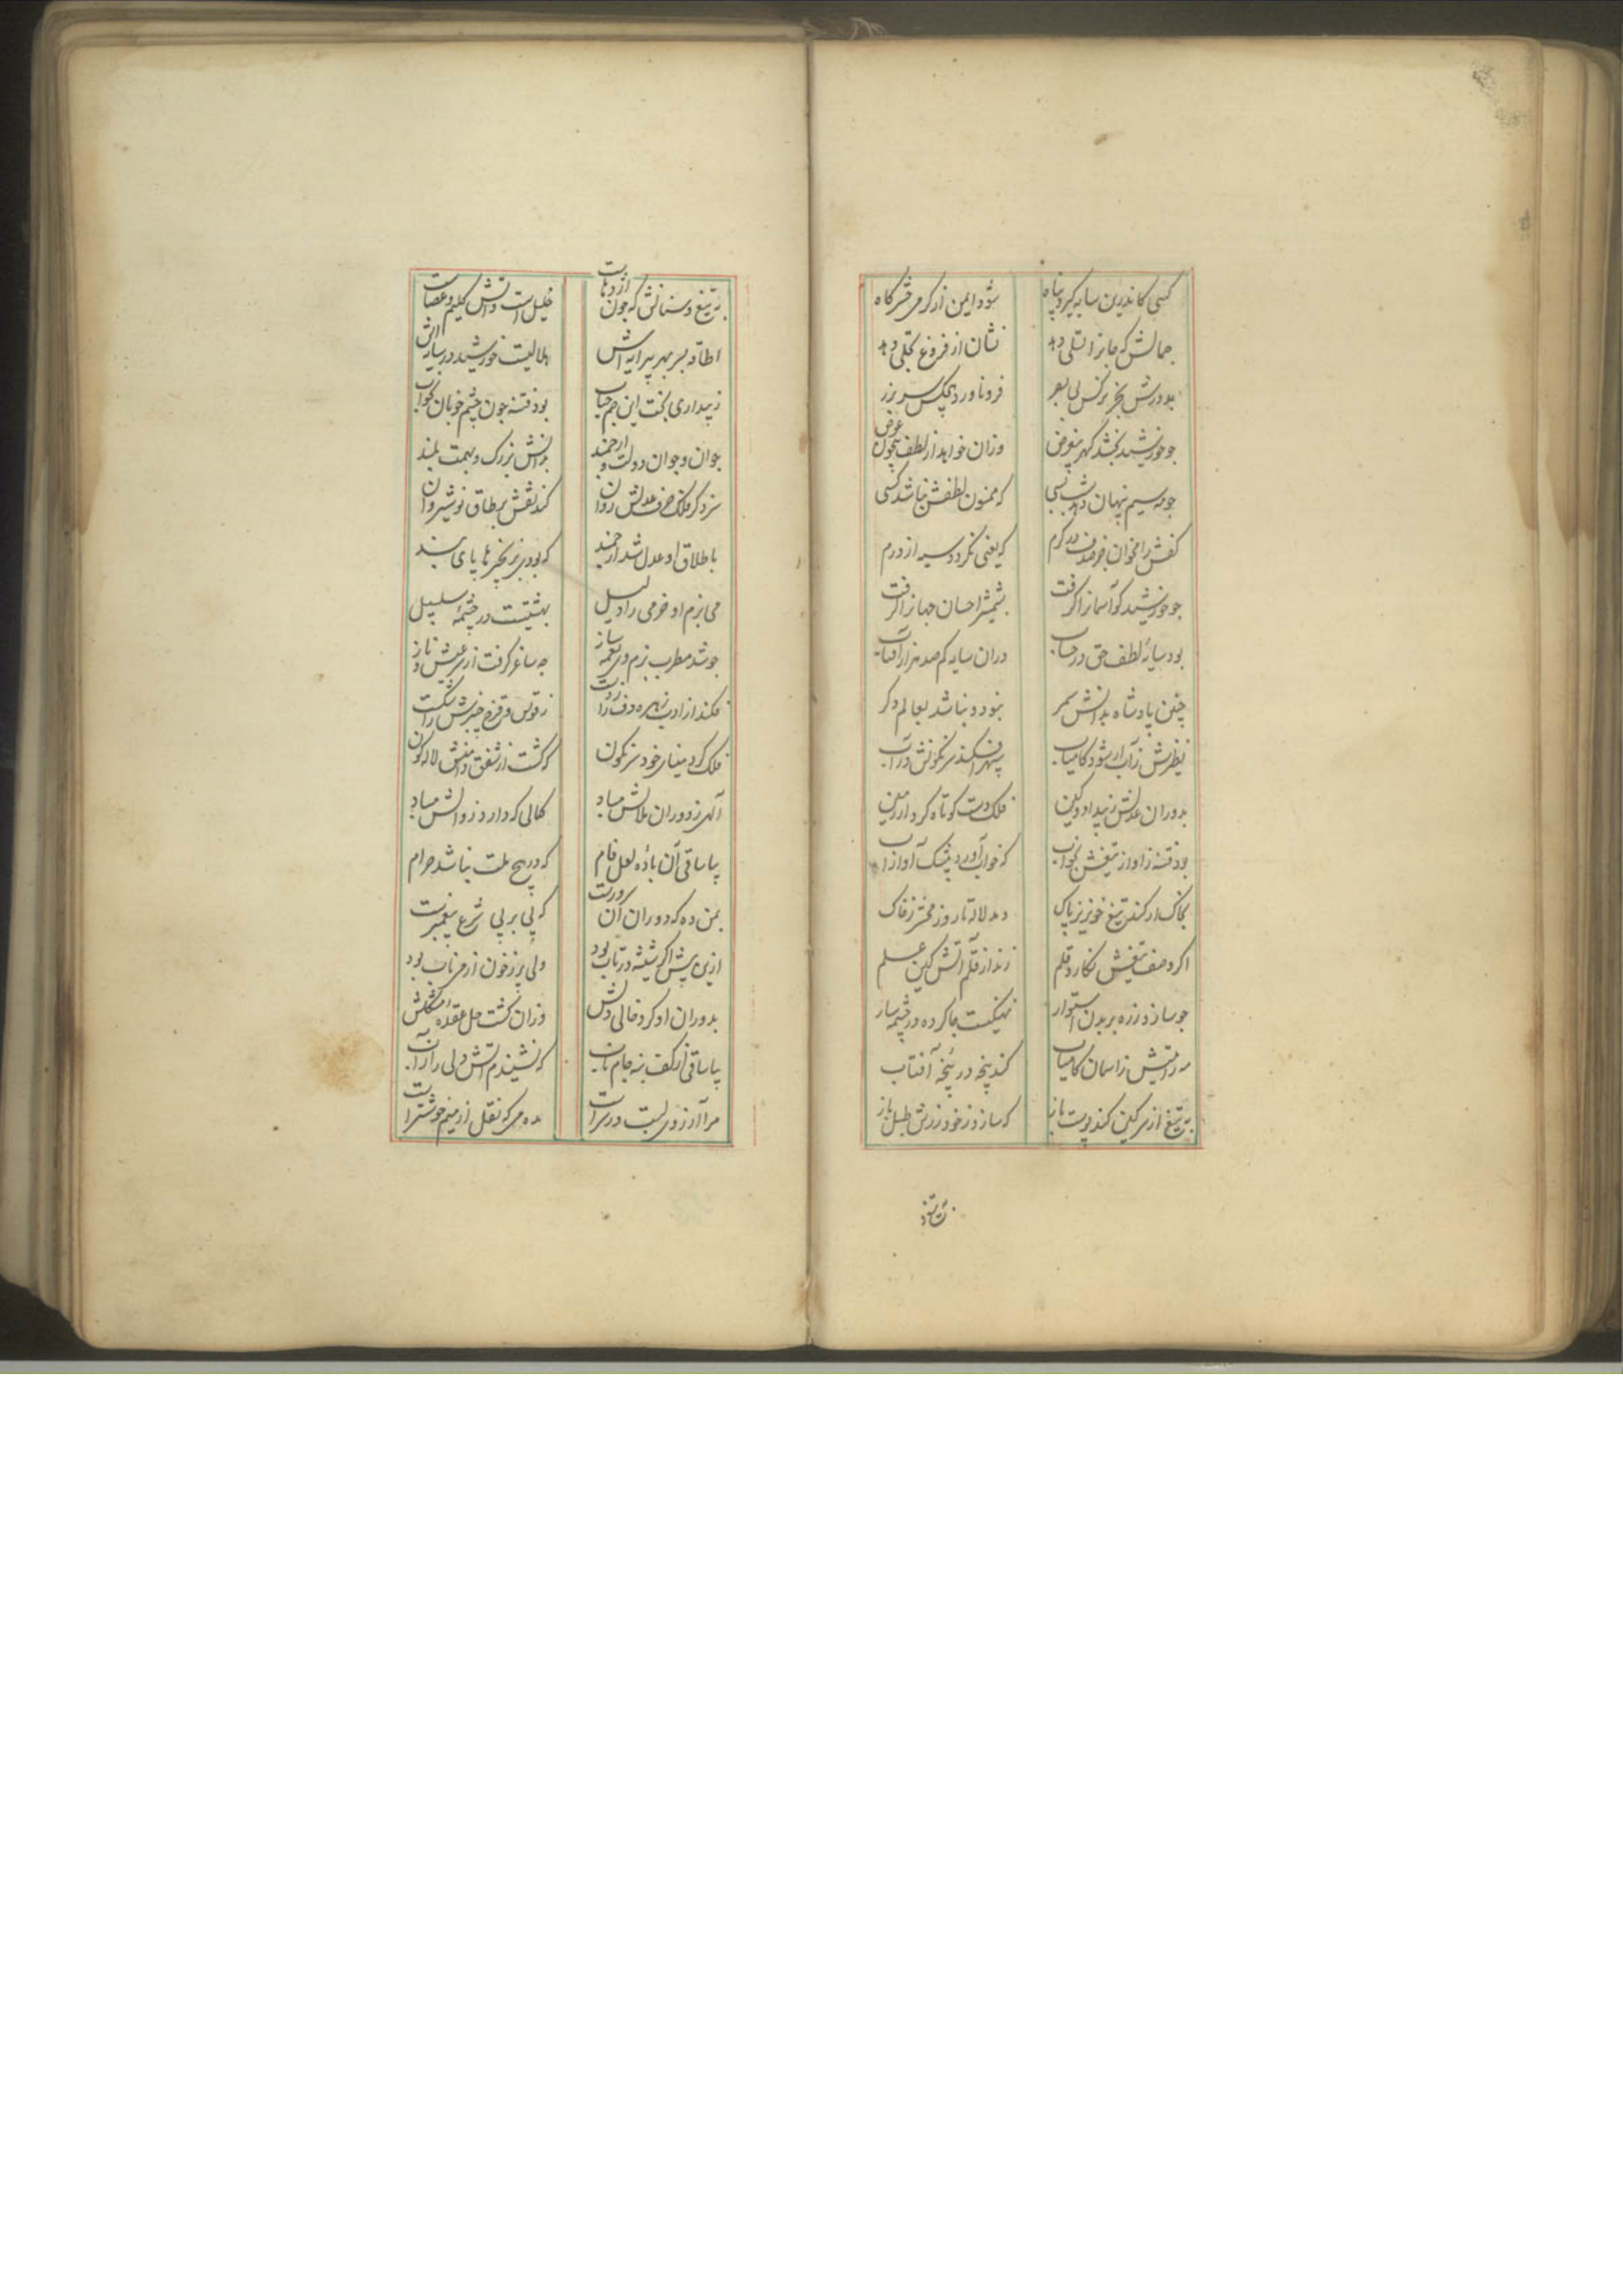 کسی کاندرین سایه گیرد پناه شود ایمن از گرمی حشرگاه
جمالش که جانرا تسلی دهد نشان از فروغ تجلی دهد
بدورش بجز نرگس بی بصر فرو ناورد هیچکس سر بزر
چو خورشید بخشد گهر بیغرض وزان خواهد از لطف بیچون عوض
چو مه سیم پنهان دهد شب بسی که ممنون لطفش نباشد کسی
کفش را مخوان در کرم که یعنی نگردد سیه از درم
چو خورشید کو آسمانرا گرفت بشمشیر احسان جهانرا گرفت
بود سایهٔ لطف حق در حساب در آن سایه گم صد هزار آفتاب
چنین پادشاه بدانش سمر نبود و نباشد بعالم دگر
نظیرش ز آب ار شود کامیاب سپهر افکند سرنگونش در آب
بدوران عدلش ز بیداد و کین فلک دست کوتاه کرد از زمین
بود فتنه ز آواز تیغش بخواب که خواب آورد بیشک آواز آب
بخاک ار کند تیغ خونریز پاک دمد لاله تا روز محشر ز خاک
اگر وصف تیغش نگارد قلم زند از قلم آتش کین علم
چو سازد زره بر بدن استوار نهنگیست جا کرده در چشمه سار
مه رایتش ز آسمان کامیاب کند پنجه در پنجهٔ آفتاب
به تیغ از سر کین کند پوست باز که سازد ز خود زرش طبل باز
به تیغ و
به تیغ و سنانش که چون اژدهاست خلیل است و آتش کلیم و عصاست
اطاقه بسر بهر پیرایه اش هلالیست خورشید در سایه اش
ز بیداری بخت این جم جناب بود فتنه چون چشم خوبان بخواب
جوان و جوان دولت و ارجمند بدانش بزرگ و بهمت بلند
سزد گر فلک حرف عدلش روان کند نقش بر طاق نوشیروان
باطلاق او عدل شد ارجمند که بودی بزنجیرها پای بند
می بزم او خرمی را دلیل بهشتیست در چشمهٔ سلسبیل
چو شد مطرب بزم وی نغمه ساز چه ساغر گرفت از سر عیش و ناز
فکند از ادب زهره دف را ز دست ز قوس و قزح چنبرش را شکست
فلک کرد مینای خود سرنگون که گشت از شفق دامنش لاله گون
الهی ز دوران ملالش مباد کمالی که دارد زوالش مباد
بیا ساقی آن بادهٔ لعل فام که در هیچ ملت نباشد حرام
بمن ده که دوران آن سرورست که پی بر پی شرع پیغمبرست
ازین پیش اگر شیشه در تاب بود ولی پر ز خون از می ناب بود
بدوران او کرد خالی دلش وزان گشت حل عقدهٔ مشکلش
بیا ساقی از کف بنه جام ناب که ننشیندم آتش دل از آن آب
مرا آرزوی لبت در سرست بده می که نقل از میم خوشترست